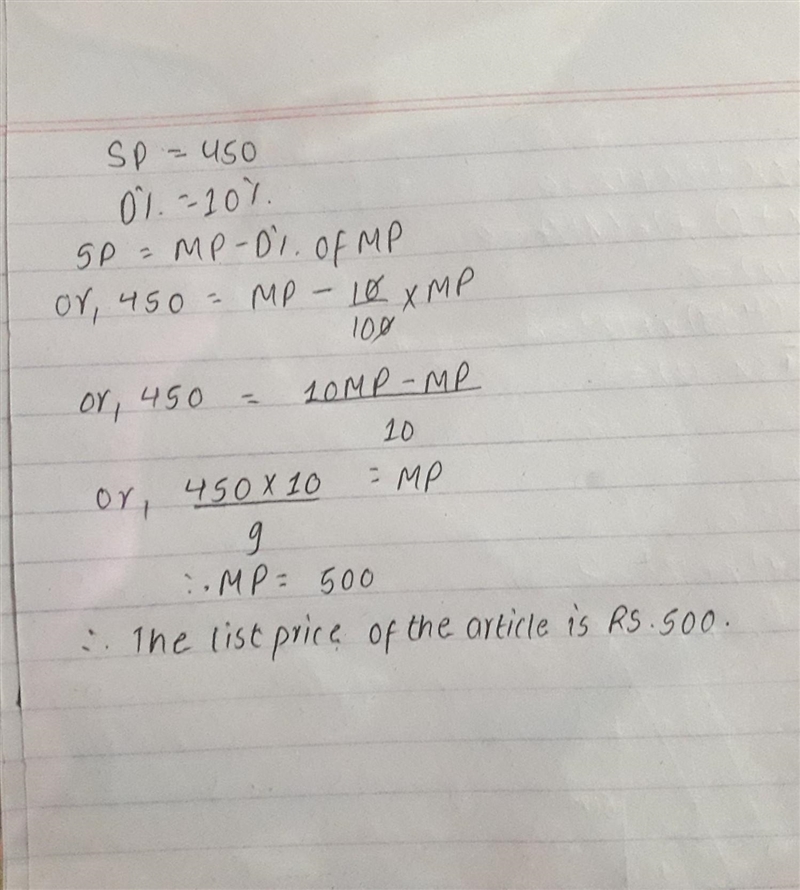 SP = 450
D%. = 10%.
SP = MP - D%. of MP
or, 450 = MP - 10/100 × MP
or, 450 = 10MP - MP / 10
or, 450 × 10 / 9 = MP
∴ MP = 500
∴ The list price of the article is RS. 500.